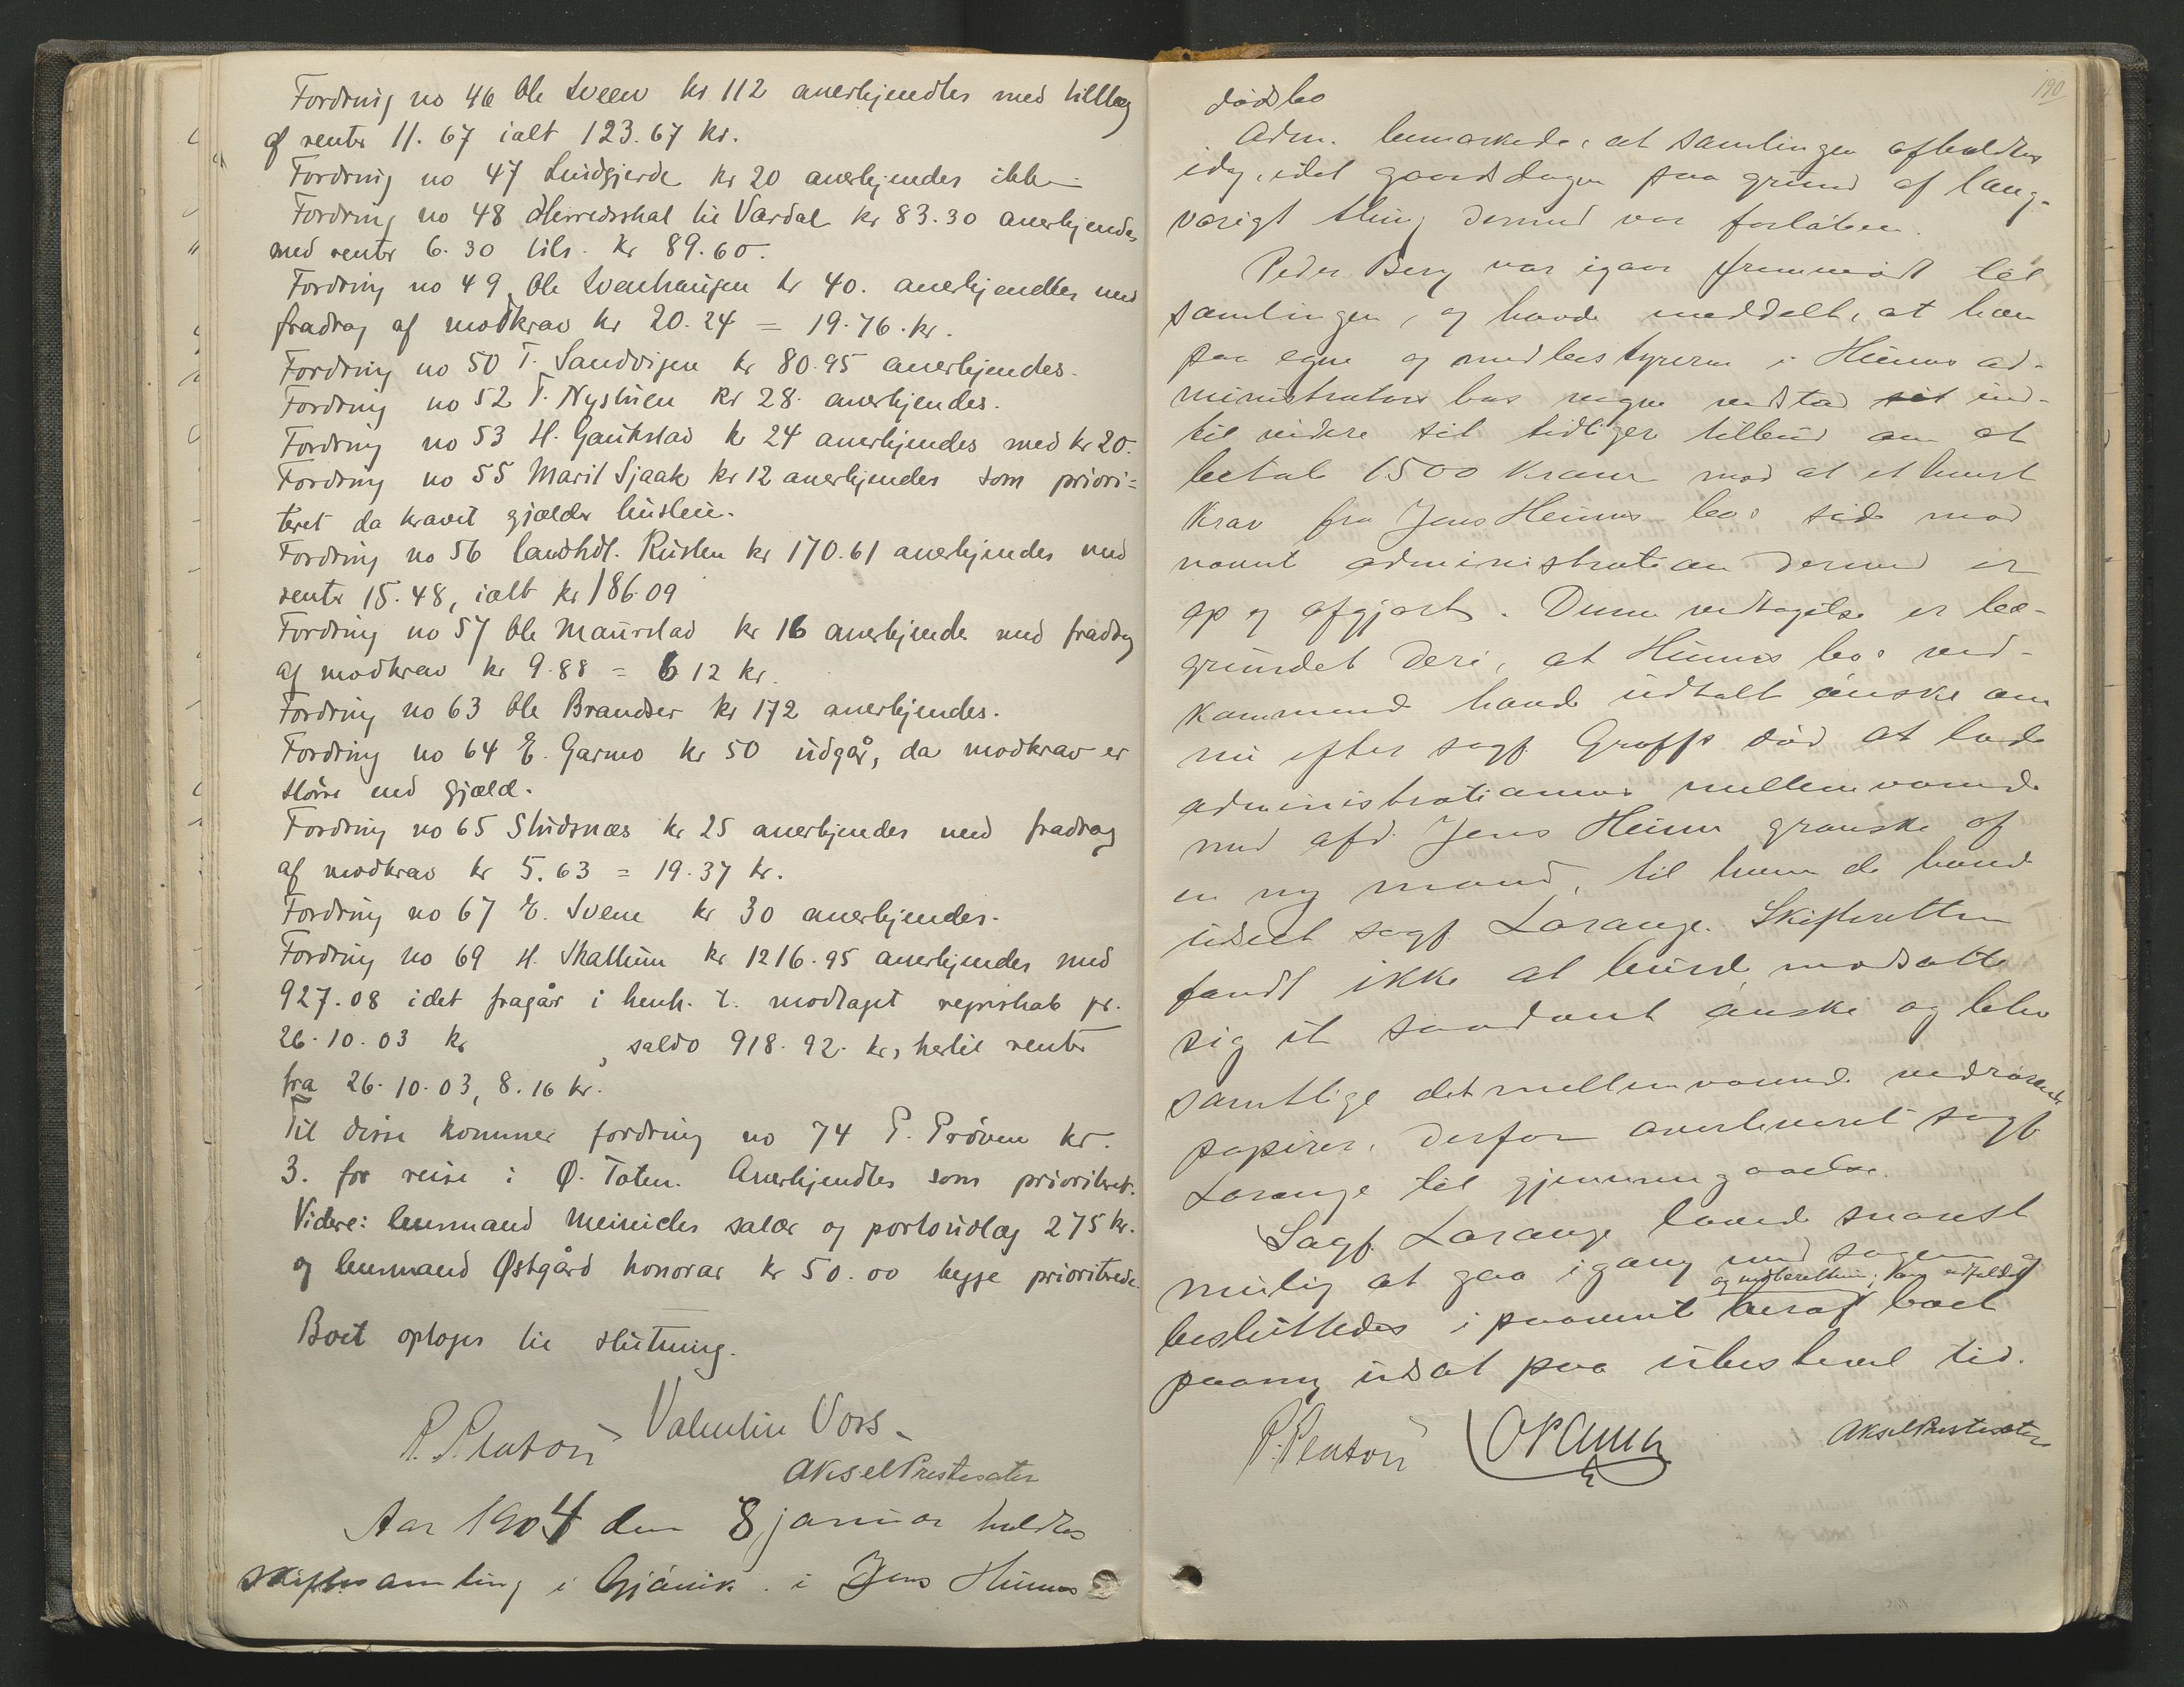 Fordring no 46 Ole Sveen kr 112 anerkjendtes med tillæg
af renter 11.67 ialt 123.67 kr.
Fordring no 47 Lundgjerde kr 20 anerkjendes ikke
Fordring no 48 Herredsskat til Vardal kr 83.30 anerkjendes
med renter 6.30 tils. kr 89.60.
Fordring no 49 Ole Svenhaugen kr 40. anerkjendtes med
fradrag af modkrav kr 20.24 = 19.76.kr.
Fordring no 50 T. Sandvigen kr 80.95 anerkjendes.
Fordring no 52 T. Nystuen kr 28. anerkjendes.
Fordring no 53 H. Gaukstad kr 24 anerkjendes med kr 20.
Fordring no 55 Marit Sjaak kr 12 anerkjendes som priori=
teret da kravet gjælder husleie.
Fordring no 56 landhdl. Rusten kr 170.61 anerkjendes med
renter 15.48, ialt kr 186.09
Fordring no 57 Ole Maurstad kr 16 anerkjendes med fradrag
af modkrav kr 9.88 = 6 12 kr.
Fordring no 63 Ole Brandser kr 172 anerkjendes.
Fordring no 64 E. Garmo kr 50 udgår, da modkrav er
større end gjæld.
Fordring no 65 Studsnæs kr 25 anerkjendes med fradrag
af modkrav kr 5.63 = 19.37 kr.
Fordring no 67 E. Svene kr 30 anerkjendes.
Fordring no 69 H. Skattum kr 1216.95 anerkjendes med
927.08 idet fragår i henh. t. modtaget regnskab pr.
26.10.03 kr , saldo 918.92. kr, hertil renter
fra 26.10.03, 8.16 kr.
Til disse kommer fordring no 74 P. Prøven kr.
3. for reise i Ø. Toten. Anerkjendtes som prioriteret.
Videre: lensmand Meinichs salær og portoudlæg 275 kr.
og lensmand Østgård honorar kr 50.00 begge prioriterede.
Boet optages til slutning.
R. Platou Valentin Voss.
Aksel Prestesæter
Aar 1904 den 8 januar holdtes
skiftesamling i Gjøvik i Jens Hunns
190
dødsbo
Adm. bemærkede, at samlingen afholdtes
idag, idet gaarsdagen paa grund af lang-
varigt thing dermed var forløben.
Peder Berg var igaar fremmødt til
samlingen, og havde meddelt, at han
paa egne og medbestyreren i Hunns ad-
ministrations bos vegne vedstod sit ind-
til videre sit tidligere tilbud om at
betale 1500 kroner mod at ethvert
krav fra Jens Hunns bo's side mod
nævnt administration dermed er
op og afgjort. Denne vedtagelse er be-
grundet deri, at Hunns bo's ved-
kommende havde udtalt ønske om
nu efter sagf. Groffs død at lade
administrationens mellemværende
med afd. Jens Hunn granske af
en ny mand, til hvem de havde
udseet sagf. Lorange. Skifteretten
fandt ikke at burde modsætte
sig et saadant ønske og blev
samtlige det mellemværende vedrørende
papirer, derfor overleveret sagf.
Lorange til gjennemgaaelse.
Sagf. Lorange lovede snarest
mulig at gaa igang med sagen
besluttedes i paavente heraf boet
paany udsat paa ubestemt tid.
R. Platou Aksel Prestesæter